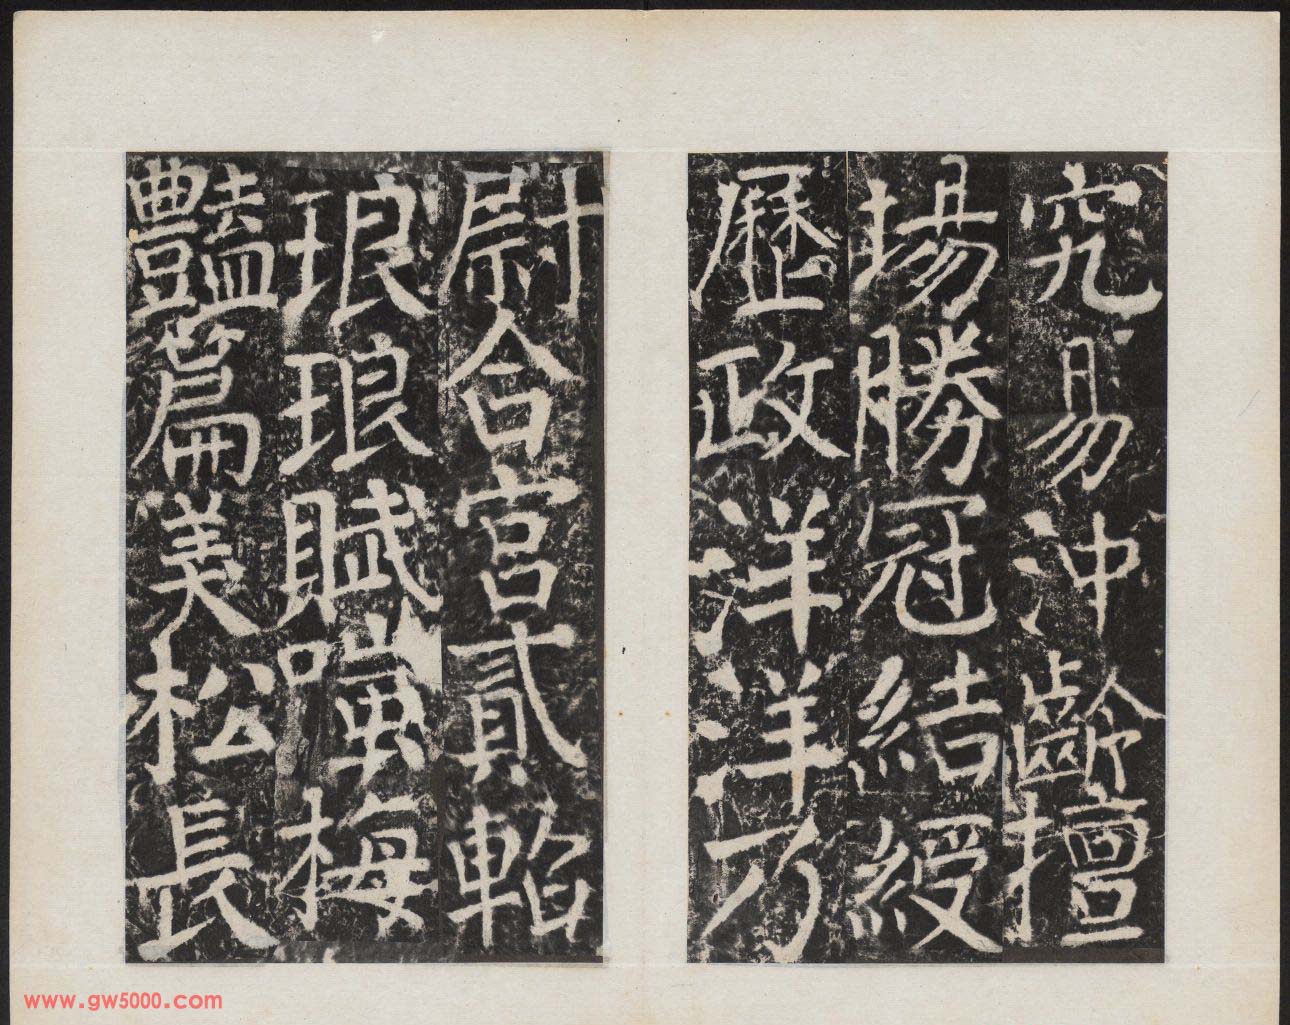 究易冲齡擅
場勝冠結綬
歷政洋洋乃
尉合宮貳軺
琅琅賦嗤梅
豔篇美松長
www.gw5000.com